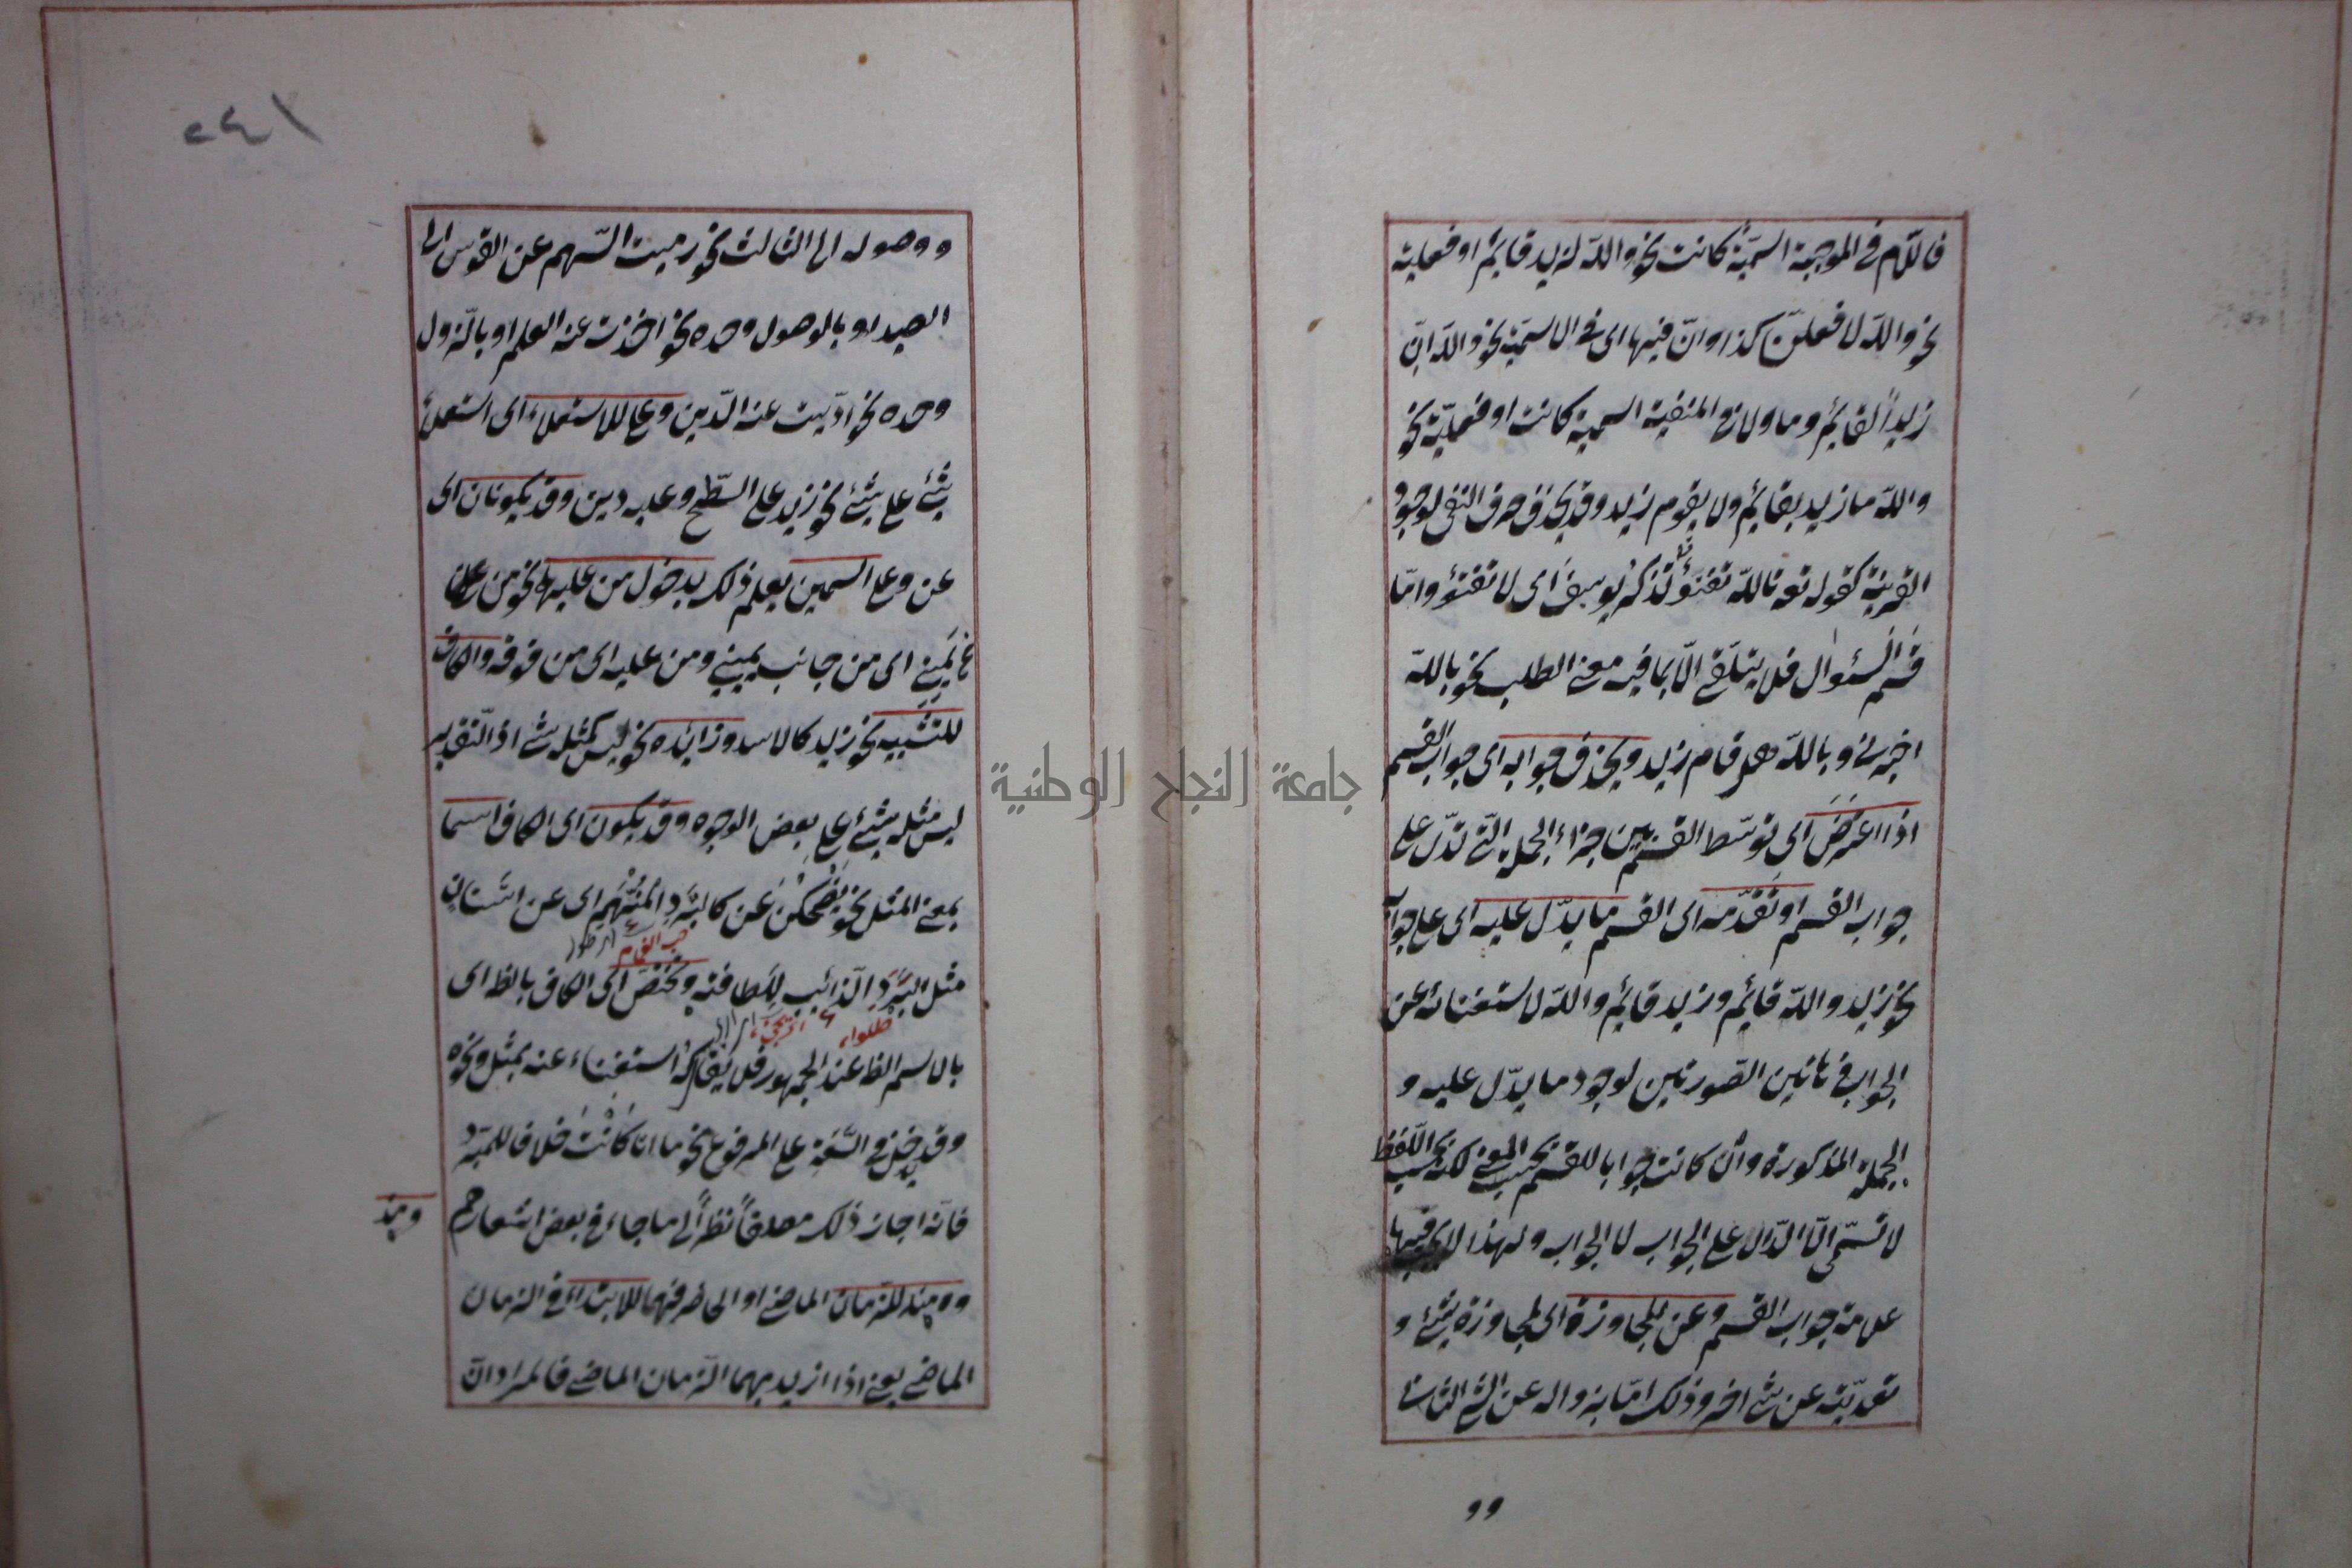 فاللّام في الموجبة اسميّة كانت نحو والله لزيد قايم او فعلية
نحو والله لافعلنّ كذا وانّ فيها اى في الاسميّة نحو والله انّ
زيداً لقايم وما ولا في المنفية اسمية كانت او فعليّة نحو
والله ما زيد بقايم ولا يقوم زيد وقد يحذف حرف النفى لوجود
القرينة كقوله تع تالله تفتؤُ تذكر يوسف اى لا تفتؤ وامّا
قسم السئوال فلا يتلقى الّا بما فيه معنى الطلب نحو بالله
اخبرنى وبالله هل قام زيد ويحذف جوابه اى جواب القسم
اذا اعترض اى توسّط القسم بين جزاء الجملة الّتى تدّل على
جواب القسم او تقدّمه اى القسم ما يدّل عليه اى على جوابه
نحو زيد والله قايم وزيد قايم والله لاستغنائه عن
الجواب في هاتين الصّورتين لوجود ما يدّل عليه و
الجملة المذكورة وان كانت جوابا للقسم بحسب المعنى لكن بحسب اللّفظ
لا تسمّى الّا الدّال على الجواب لا الجواب ولهذا لا يجب فيها
علامة جواب القسم وعن للمجاوزة اى لمجاوزة شئ و
تعديته عن شئ اخر وذلك امّا بزواله عن الشئ الثانى
وو
١٤٢
ووصوله الى الثالث نحو رميت السّهم عن القوس الى
الصيد او بالوصول وحده نحو اخذت عنه العلم او بالزّوال
وحده نحو ادّيت عنه الدّين وعلى للاستعلاء اى استعلاء
شئ على شئ نحو زيد على السّطح وعليه دين وقد يكونان اى
عن وعلى اسمين يعلم ذلك بدخول من عليهما نحو من عن
يمينى اى من جانب يمينى ومن عليه اى من فوقه والكاف
للتشبيه نحو زيد كالاسد وزائده نحو ليس كمثله شئ اذ التّقدير
ليس مثله شئ على بعض الوجوه وقد يكون اى الكاف اسما
بمعنى المثل نحو يضحكن عن كالبَرَدِ المُنْهَمِ اى عن اسنان
حب الغمام
مثل البَرَدِ الذائب للطافته وتختصّ اى الكاف بالظ اى
بالاسم الظ عند الجمهور فلا يقال كه استغناء عنه بمثل ونحوه
وقد يدخل في السّعة على المرفوع نحو ما انا كانت خلافا للمبرّد
فانّه اجاز ذلك مطلقاً نظراً الى ما جاء في بعض اشعارهم
ومذ
ومنذ للزّمان الماضى او الحاضر فهما للابتداء في الزمان
الماضى يعنى اذا اريد بهما الزّمان الماضى فالمراد انّ
جامعة النجاح الوطنية